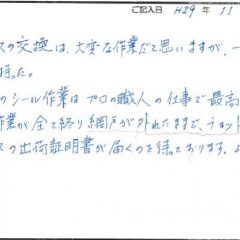 ご記入日 H29年 11
スの交換は、大変な作業だと思いますが、一
持った。
のシール作業はプロの職人の仕事で最高
作業が全て終り網戸が外れたままで、チョット
スの出荷証明書が届くのを待っております。よ